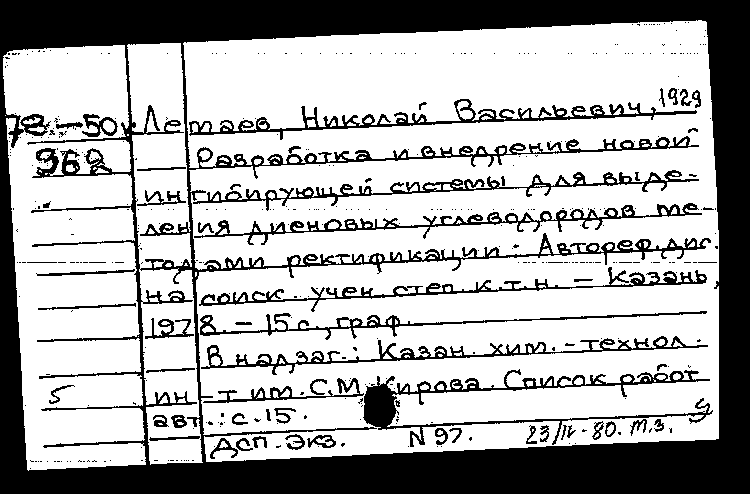 78-50к Летаев, Николай Васильевич, 1929
962 Разработка и внедрение новой
ингибирующей системы для выде-
ления диеновых углеводородов ме-
тодами ректификации: Автореф. дис.
на соиск. учен. степ. к.т.н. - Казань,
1978. - 15 с., граф.
В надзаг.: Казан. хим.-технол.
5 ин-т им. С.М. Кирова. Список работ
авт.: с. 15.
ДСП. Экз. N 97. 23/IV-80. т.з.